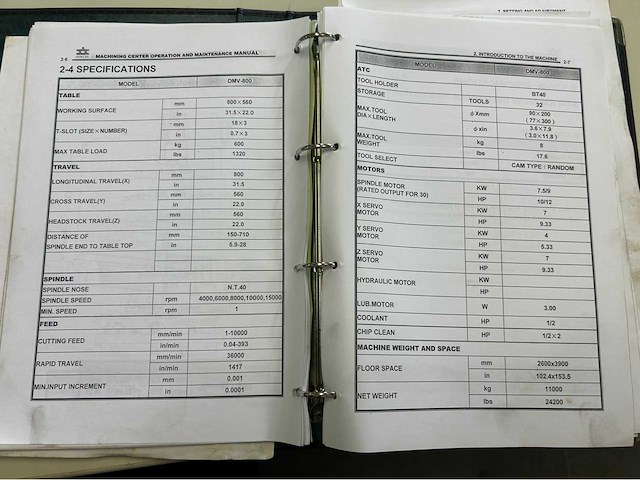 2-6 MACHINING CENTER OPERATION AND MAINTENANCE MANUAL
2-4 SPECIFICATIONS
MODEL DMV-800
TABLE
WORKING SURFACE mm 800×560
in 31.5×22.0
T-SLOT (SIZE×NUMBER) mm 18×3
in 0.7×3
MAX TABLE LOAD kg 600
lbs 1320
TRAVEL
LONGITUDINAL TRAVEL(X) mm 800
in 31.5
CROSS TRAVEL(Y) mm 560
in 22.0
HEADSTOCK TRAVEL(Z) mm 560
in 22.0
DISTANCE OF mm 150-710
SPINDLE END TO TABLE TOP in 5.9-28
SPINDLE
SPINDLE NOSE N.T.40
SPINDLE SPEED rpm 4000,6000,8000,10000,15000
MIN. SPEED rpm 1
FEED
CUTTING FEED mm/min 1-10000
in/min 0.04-393
RAPID TRAVEL mm/min 36000
in/min 1417
MIN.INPUT INCREMENT mm 0.001
in 0.0001
7. SETTING AND ADJUSTMENT
2. INTRODUCTION TO THE MACHINE 2-7
MODEL DMV-800
ATC
TOOL HOLDER BT40
STORAGE TOOLS 32
MAX.TOOL
DIA×LENGTH ϕXmm 90×200
(77×300)
ϕxin 3.6×7.9
(3.0×11.8)
MAX.TOOL
WEIGHT kg 8
lbs 17.6
TOOL SELECT CAM TYPE / RANDOM
MOTORS
SPINDLE MOTOR
(RATED OUTPUT FOR 30) KW 7.5/9
HP 10/12
X SERVO
MOTOR KW 7
HP 9.33
Y SERVO
MOTOR KW 4
HP 5.33
Z SERVO
MOTOR KW 7
HP 9.33
HYDRAULIC MOTOR KW
HP
LUB.MOTOR W 3.00
COOLANT HP 1/2
CHIP CLEAN HP 1/2×2
MACHINE WEIGHT AND SPACE
FLOOR SPACE mm 2600x3900
in 102.4x153.5
NET WEIGHT kg 11000
lbs 24200